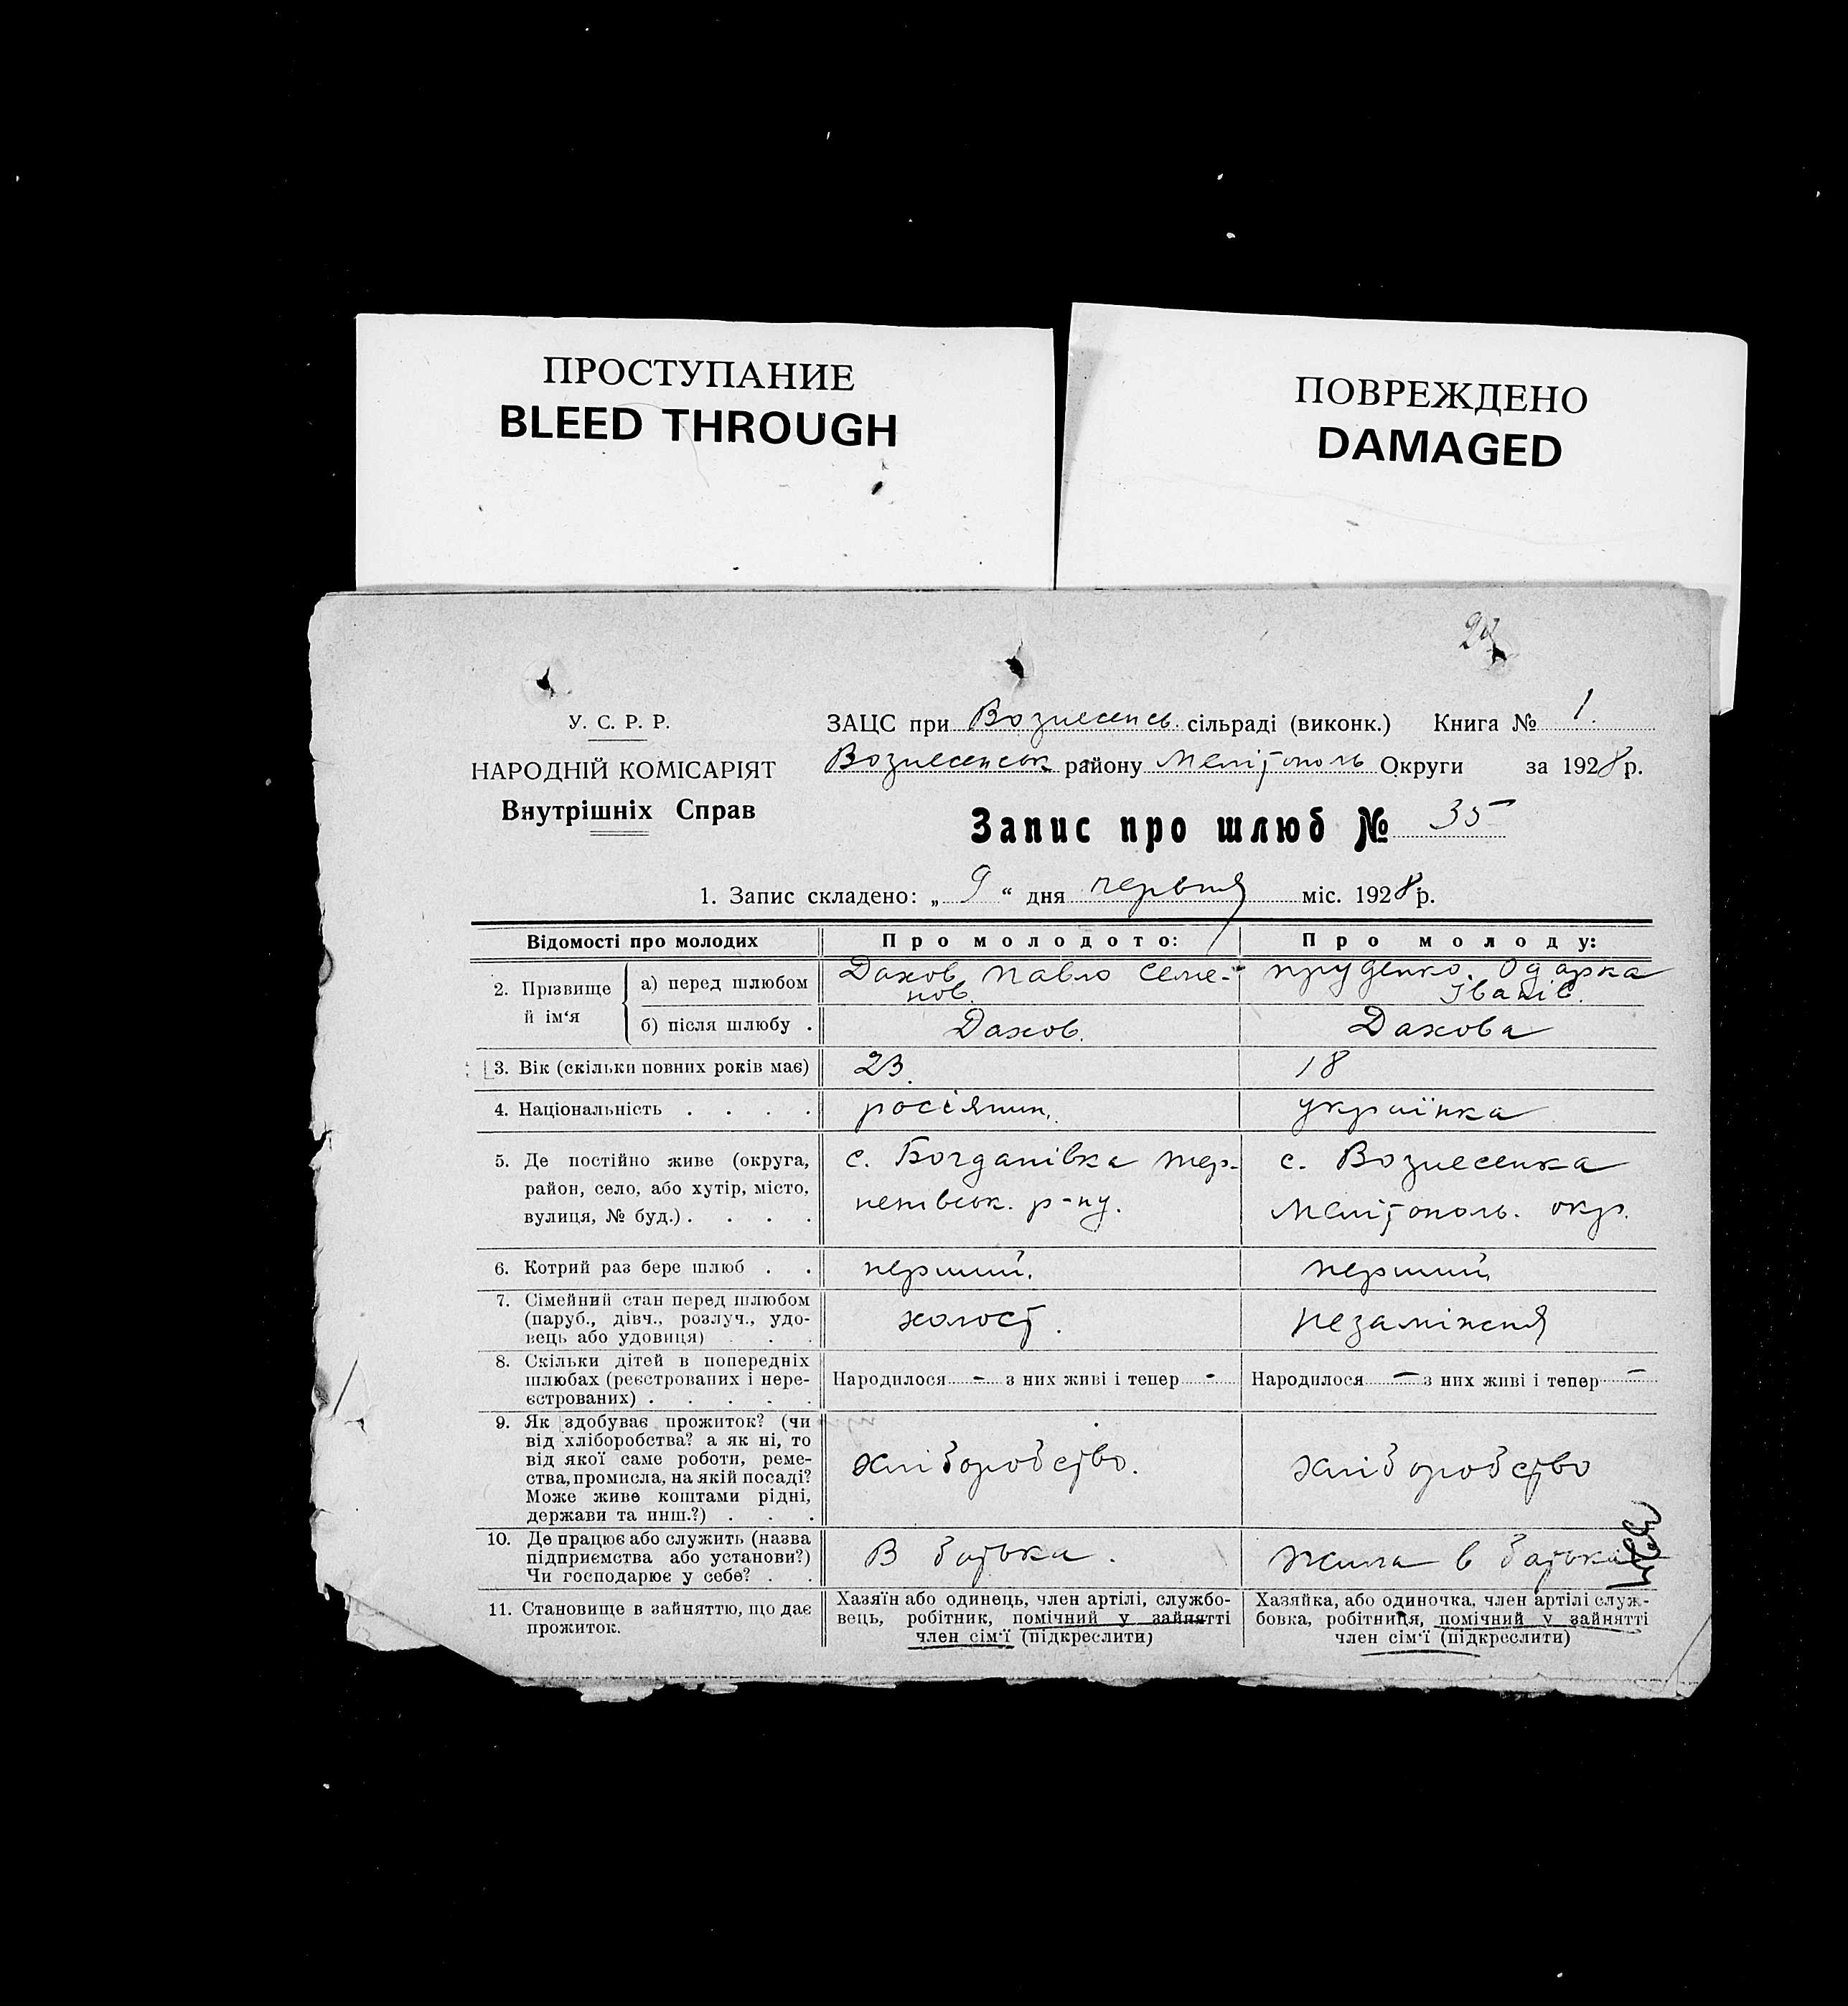 ПРОСТУПАНИЕ
BLEED THROUGH
ПОВРЕЖДЕНО
DAMAGED
У. С. Р. Р.
НАРОДНІЙ КОМІСАРІЯТ
Внутрішніх Справ
ЗАЦС при Вознесенсь. сільраді (виконк.) Книга № 1.
Вознесенськ району Мелітополь Округи за 1928 р.
Запис про шлюб № 35
1. Запис складено: „ 9 “ дня червня міс. 1928 р.
Відомості про молодих
Про молодого:
Про молоду:
2. Прізвище й ім‘я
а) перед шлюбом
Дахов Павло Семе-
нов.
Пруденко. Одарка
Іванів.
б) після шлюбу .
Дахов.
Дахова
3. Вік (скільки повних років має)
23.
18
4. Національність . . . .
росіянин.
українка
5. Де постійно живе (округа,
район, село, або хутір, місто,
вулиця, № буд.) . . . .
с. Богданівка Тер-
пенівськ. р-ну.
с. Вознесенка
Мелітополь. окр.
6. Котрий раз бере шлюб . .
перший.
перший
7. Сімейний стан перед шлюбом
(паруб., дівч., розлуч., удо-
вець або удовиця) . . .
холост.
незаміжня
8. Скільки дітей в попередніх
шлюбах (реєстрованих і нере-
єстрованих) . . . . .
Народилося - з них живі і тепер -
Народилося - з них живі і тепер -
9. Як здобуває прожиток? (чи
від хліборобства? а як ні, то
від якої саме роботи, реме-
ства, промисла, на якій посаді?
Може живе коштами рідні,
держави та инш.?) . . .
хліборобство.
хліборобство
10. Де працює або служить (назва
підприємства або установи?)
Чи господарює у себе? . .
В батька.
жила в батька
11. Становище в зайняттю, що дає
прожиток.
Хазяїн або одинець, член артілі, службо-
вець, робітник, помічний у зайнятті
член сім‘ї (підкреслити)
Хазяйка, або одиночка, член артілі служ-
бовка, робітниця, помічний у зайнятті
член сім‘ї (підкреслити)